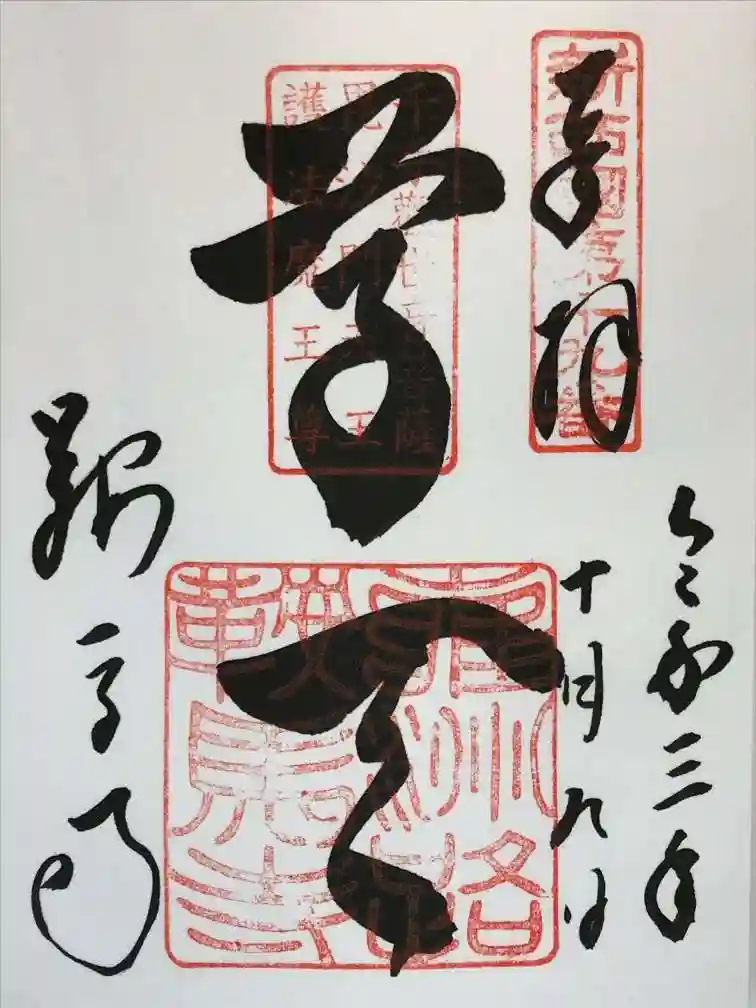 奉拝
新西國第十九番
令和三年
十月九日
尊天
千手觀世音菩薩
毘沙門天王
護法魔王尊
雍州洛北
鞍馬寺
鞍馬寺